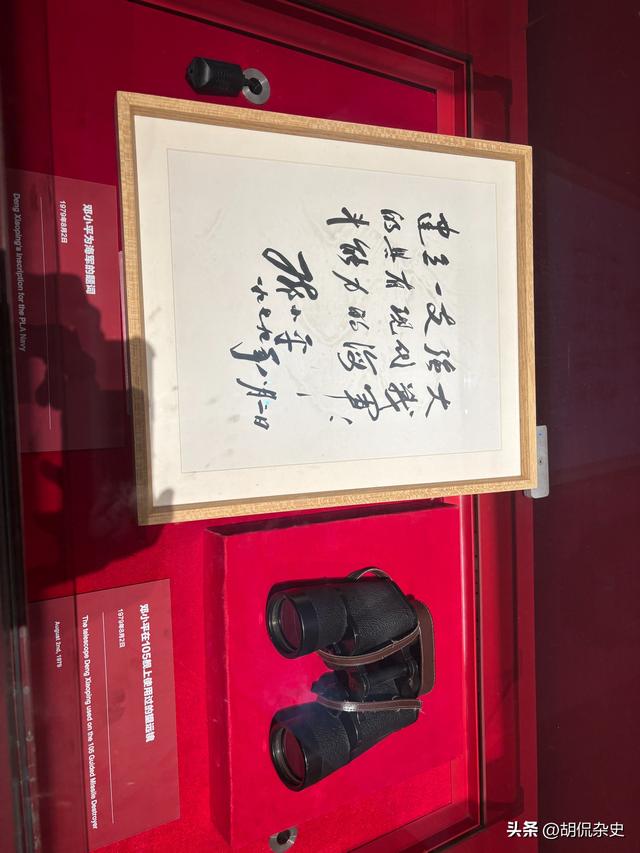 建立一支强大
的具有现代战
斗能力的海军。
邓小平
一九七九年八月二日
邓小平为海军的题词
1979年8月2日
Deng Xiaoping's inscription for the PLA Navy
邓小平在105舰上使用过的望远镜
1979年8月2日
The telescope Deng Xiaoping used on the 105 Guided Missile Destroyer
August 2nd, 1979
头条 @胡侃杂史